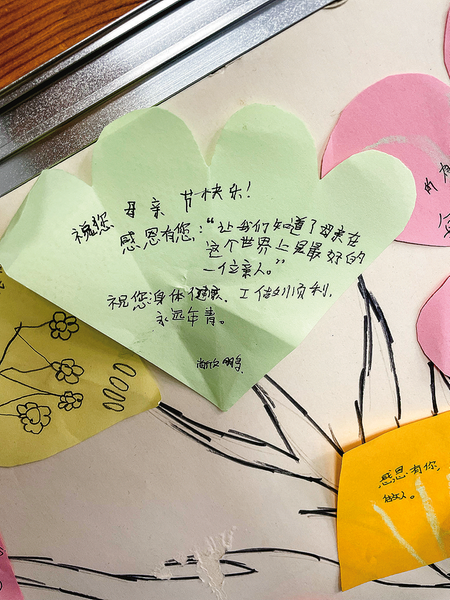 祝您 母亲 节快乐!
感恩有您:"让我们知道了母亲在
这个世界上是最好的
一位亲人。"
祝您身体健康、工作顺利,
永远年青。
感恩有你,